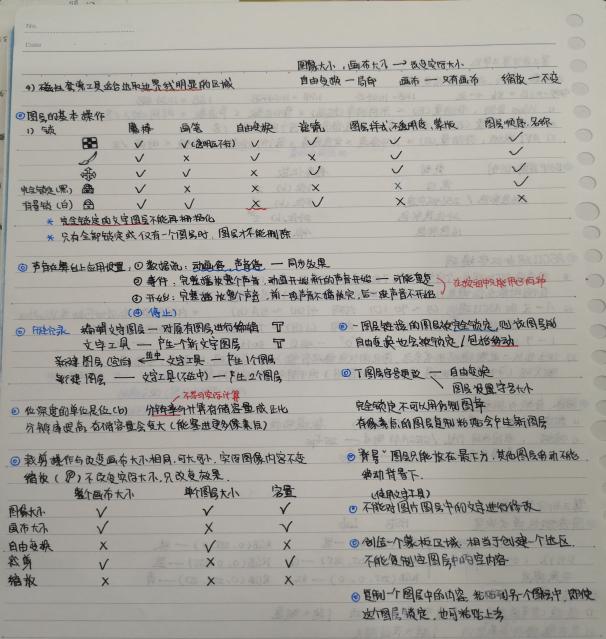 No.
Date
图像大小，画布大小 → 改变实际大小
4) 磁性套索工具适合选取边界线明显的区域
自由变换 — 局部 画布 — 只有画布 缩放 — 不变
◎ 图层的基本操作
1) 锁 魔棒 画笔 自由变换 选统 图层样式，不透明度，蒙版 图层顺序，名称
✓ ✓(透明区不行) ✓ ✓ ✓ ✓
✓ × ✓ × ✓ ✓
✓ ✓ × ✓ ✓ ✓
完全锁定(黑) ✓ × × × × ✓
背景锁(白) ✓ ✓ × ✓ × ×
* 完全锁定的文字图层不能再栅格化
* 只有全部锁定或仅有一个图层时，图层才不能删除
◎ 声音在舞台上应用设置：① 数据流：动画停，声音停 — 同步效果
② 事件：完整播放整个声音，动画开始新的声音开始 — 可能重复
③ 开始：完整播放整个声音，前一段声音不播放完，后一段声音不开始
(④ 停止)
◎ 历史记录 编辑文字图层 — 对原有图层进行编辑 T
文字工具 — 产生一个新文字图层 T
新建图层(空白) 选中 文字工具 — 产生1个图层
新建图层 — 文字工具(不选中) — 产生2个图层
◎ 一图层链接的图层被完全锁定，则该图层的
自由变换也会被锁定/包括移动
◎ T图层字号更改 — 自由变换
图层设置字号大小
◎ 位深度的单位是位(b) 分辨率与计算存储容量成正比
不参与实际计算
分辨率提高，存储容量会变大(能容进更多像素点)
完全锁定不可以用仿制图章
有像素点的图层复制粘贴会产生新图层
◎ 裁剪操作与改变画布大小相同，可大可小，实际图像内容不变
缩放(🔎)不改变实际大小，只改变效果
◎ "背景"图层只能放在最下方，其他图层自动不能
移动背景下。
整个画布大小 单个图层大小 容量
图像大小 ✓ ✓ ✓
画布大小 ✓ × ✓
自由变换 × ✓ ×
裁剪 ✓ × ✓
缩放 × × ×
(使用文字工具)
◎ 不能对图片图层中的文字进行修改
◎ 创造一个蒙板区域，相当于创建一个选区
不能复制空图层中的空内容
◎ 复制一个图层中的内容，粘贴到另一个图层中，即使
这个图层锁定，也可粘贴上去